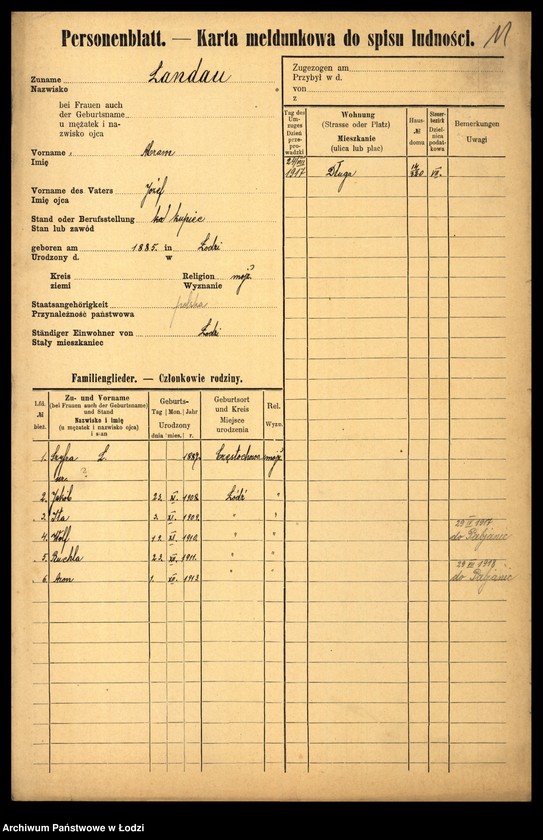 Personenblatt. — Karta meldunkowa do spisu ludności.
Zuname Landau
Nazwisko
bei Frauen auch
der Geburtsname
u mężatek i na-
zwisko ojca
Vorname Abram
Imię
Vorname des Vaters Józef
Imię ojca
Stand oder Berufsstellung kupiec
Stan lub zawód
geboren am 1885. in Łodzi
Urodzony d. w
Kreis Religion mojż.
ziemi Wyznanie
Staatsangehörigkeit polska
Przynależność państwowa
Ständiger Einwohner von Łodzi
Stały mieszkaniec
Zugezogen am
Przybył w d.
von
z
Tag des Um-zuges Dzień prze-prowadzki
Wohnung
(Strasse oder Platz)
Mieszkanie
(ulica lub plac)
Haus- № domu
Steuer-bezirk Dzielnica podatkowa
Bemerkungen
Uwagi
1917 Długa VII.
Familienglieder. — Członkowie rodziny.
Lfd. № bież.
Zu- und Vorname
(bei Frauen auch der Geburtsname)
und Stand
Nazwisko i imię
(u mężatek i nazwisko ojca)
i stan
Geburts-
Tag Mon. Jahr
Urodzony
dnia mies. r.
Geburtsort
und Kreis
Miejsce
urodzenia
Rel.
Wyzn.
1. L. 1887. Częstochowa mojż.
ur. ?
2. Jakób 23. XI. 1908. Łódź "
3. Ita 2. XI. 1909. " "
4. Wolf 12. XI. 1910. " " 29 II 1917
do Pabjanic
5. Ruchla 22. XII. 1911. " "
6. Aron 1. XII. 1913. " " do Pabjanic
Archiwum Państwowe w Łodzi